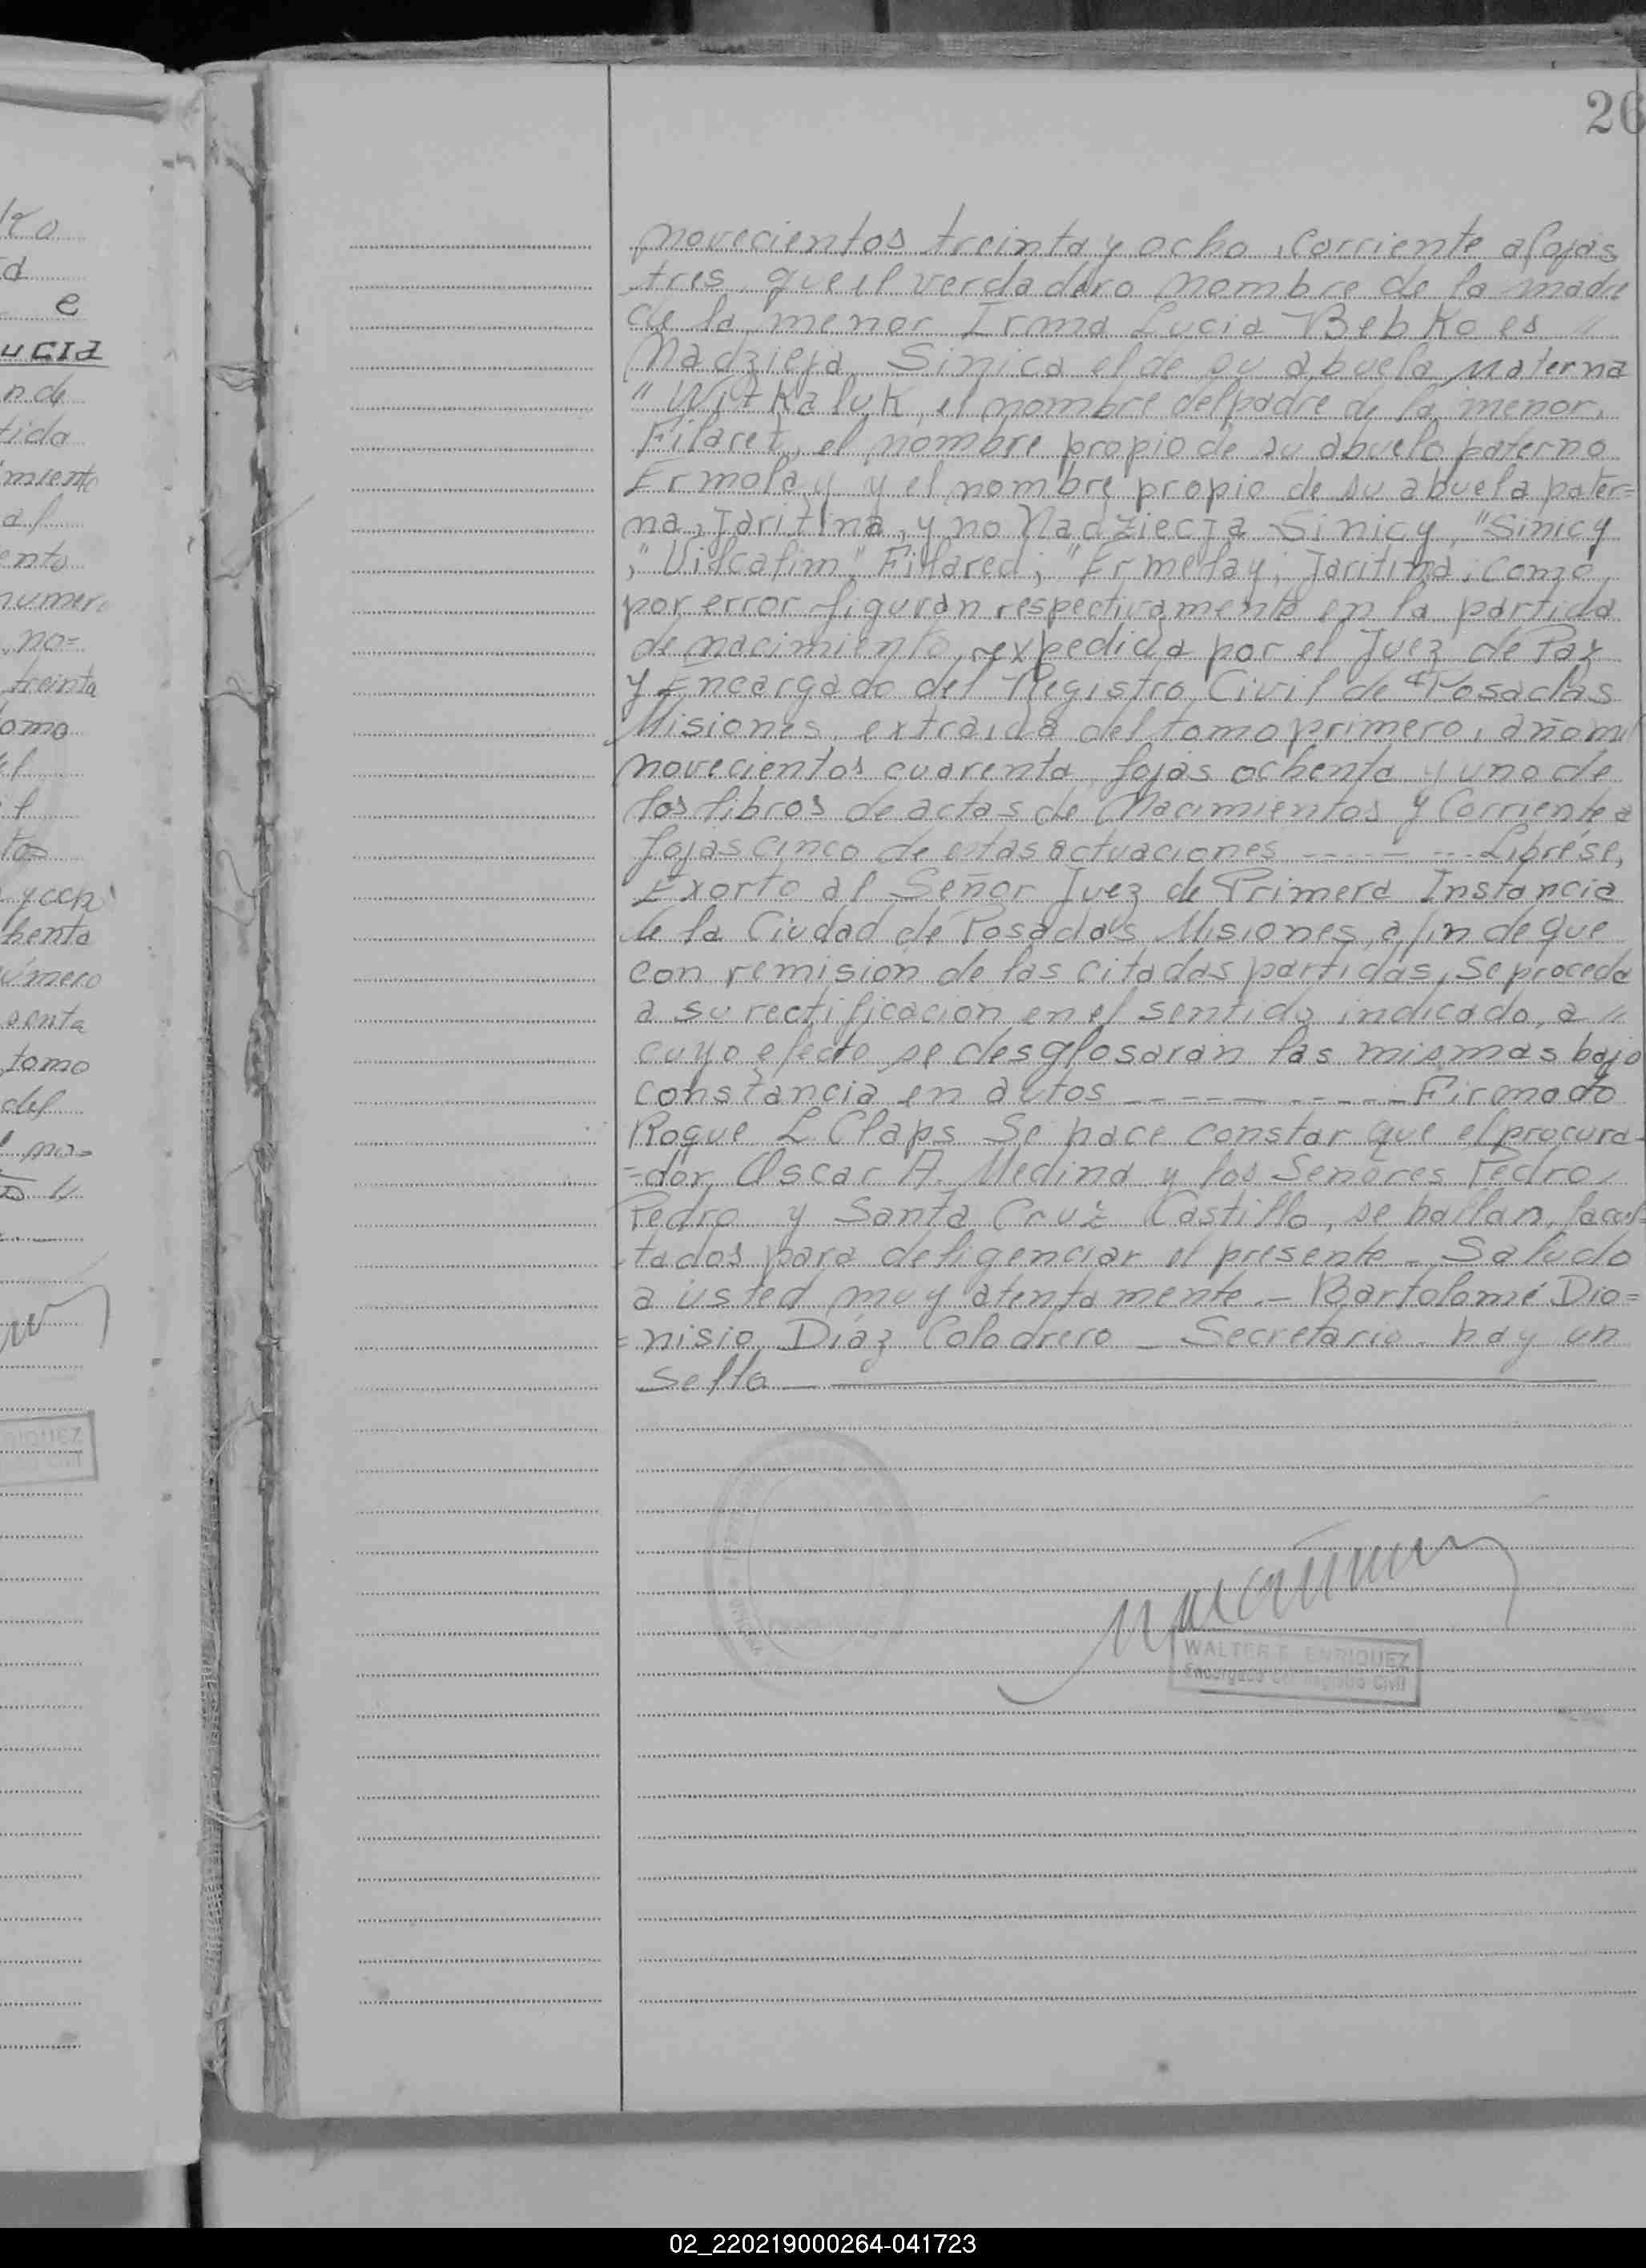 26
novecientos treinta y ocho, corriente a fojas
tres, que el verdadero nombre de la madre
de la menor Irma Lucia Bebko es "
Nadzieja Sinica el de su abuela materna
" Witkaluk, el nombre del padre de la menor,
Filaret, el nombre propio de su abuelo paterno
Ermolay y el nombre propio de su abuela pater=
na, Jaritina, y no Nadziecja Sinicy, "Sinicy
," Vidcafim" Filared; "Ermelay; Jaritina; como
por error figuran respectivamente en la partida
de nacimiento, expedida por el Juez de Paz
y Encargado del Registro Civil de Posadas
Misiones, extraida del tomo primero, año mil
novecientos cuarenta, fojas ochenta y uno de
los libros de actas de Nacimientos y Corriente a
fojas cinco de estas actuaciones ------ Librése,
Exorto al Señor Juez de Primera Instancia
de la Ciudad de Posadas, Misiones, a fin de que
con remisión de las citadas partidas, se proceda
a su rectificacion en el sentido indicado, a "
cuyo efecto se desglosaran las mismas bajo
constancia en autos ---------- Firmado
Roque L. Claps Se hace constar que el procura-
=dor, Oscar A. Medina y los Señores Pedro,
Pedro y Santa Cruz Castillo, se hallan, facul=
tados para deligenciar el presente - Saludo
a usted muy atentamente. - Bartolomé Dio=
=nisio Díaz Colodrero - Secretario - hay un
sello
WALTER F. ENRIQUEZ
Encargado del Registro Civil
ko
d
e
UCIA
n de
tida
miento
al
ento
numero
no=
treinta
tomo
el
tos
y con
henta
úmero
senta
tomo
del
no=
RIQUEZ
Civil
02_220219000264-041723